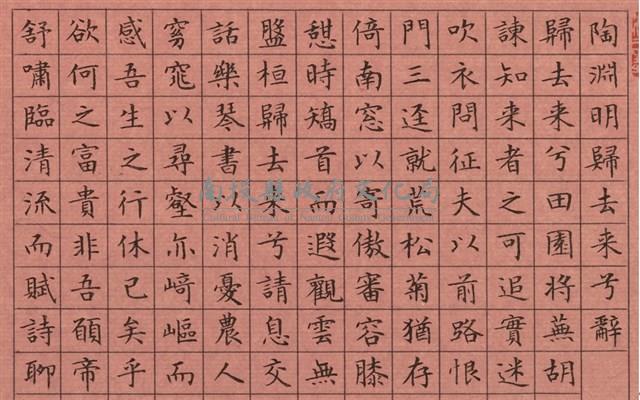 陶淵明歸去来兮辭
歸去来兮田園將蕪胡
諫知来者之可追實迷
吹衣問征夫以前路恨
門三逕就荒松菊猶存
倚南窓以寄傲審容膝
憇時矯首而遐觀雲無
盤桓歸去来兮請息交
話樂琴書以消憂農人
窈窕以尋壑亦崎嶇而
感吾生之行休已矣乎
欲何之富貴非吾願帝
舒嘯臨清流而賦詩聊
南投縣政府文化局